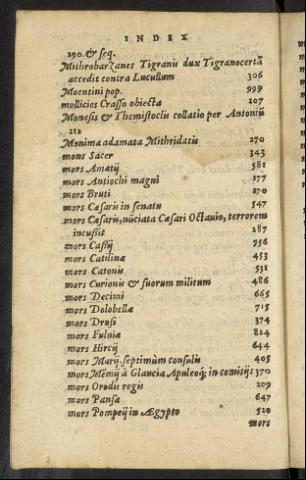 INDEX
290 & seq.
Mithrobarzanes Tigranis dux Tigranocertā
accedit contra Lucullum 306
Moentini pop. 999
mollicies Crasso obiecta 207
Monesis & Themistoclis collatio per Antoniū
212
Monima adamata Mithridatis 270
mons Sacer 343
mors Amatij 581
mors Antiochi magni 177
mors Bruti 270
mors Cæsaris in senatu 547
mors Cæsaris, nūciata Cæsari Octauio, terrorem
incußit 287
mors Caßij 756
mors Catilinæ 453
mors Catonis 531
mors Curionis & suorum militum 486
mors Decimi 665
mors Dolobellæ 715
mors Drusi 374
mors Fuluiæ 824
mors Hircij 644
mors Marij, septimùm consulis 405
mors Mēmij à Glaucia Apuleoq́; in comitijs 370
mors Orodis regis 209
mors Pansæ 647
mors Pompeij in Ægypto 520
mors